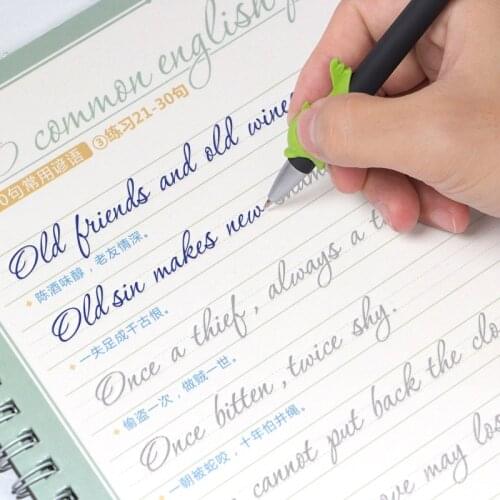 common english
0句常用谚语 ③练习21-30句
Old friends and old wines
陈酒味醇，老友情深。
Old sin makes new sham
一失足成千古恨。
Once a thief, always a t
偷盗一次，做贼一世。
Once bitten, twice shy.
一朝被蛇咬，十年怕井绳。
cannot put back the clo
ve may los